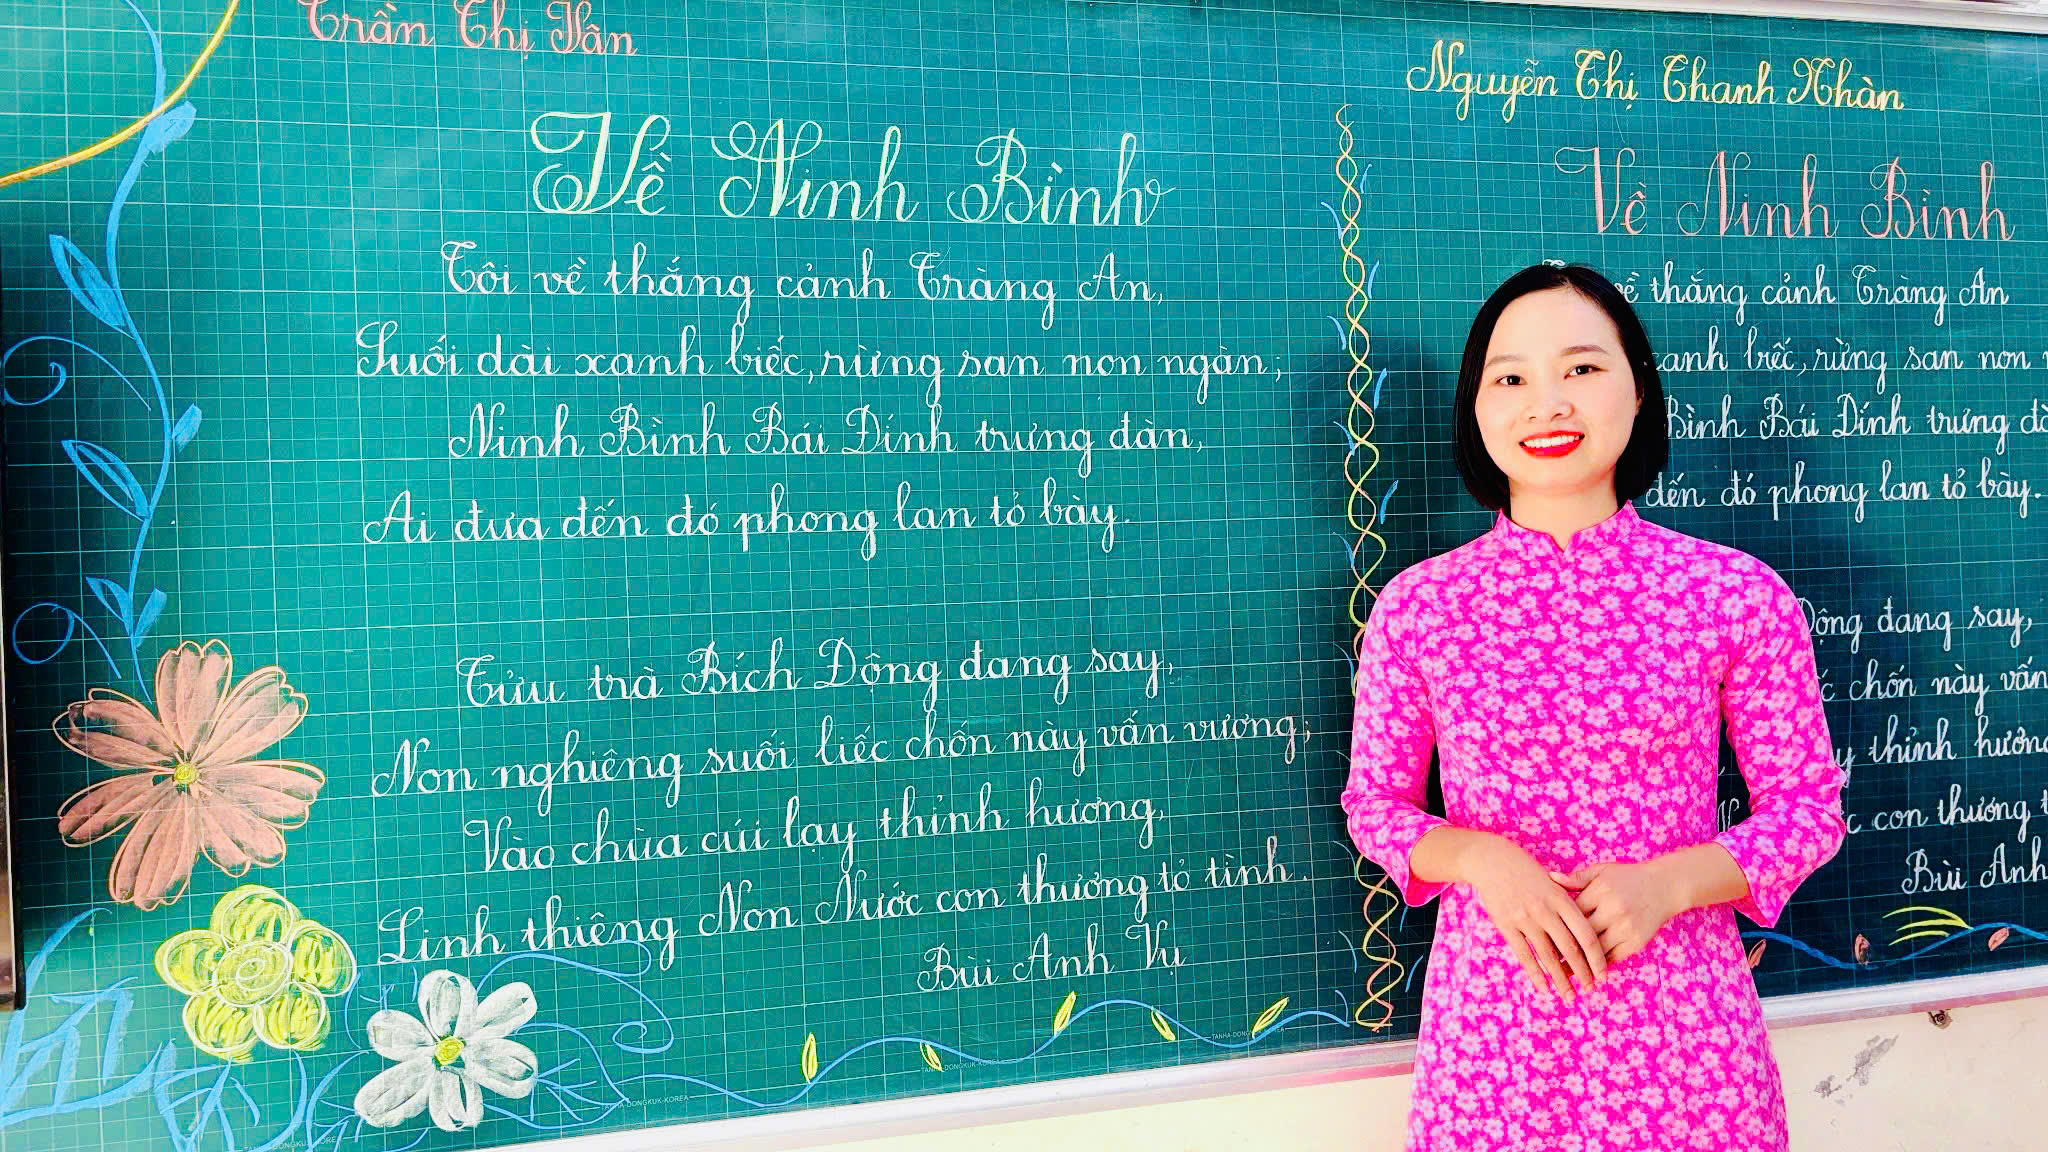 Trần Thị Vân
Về Ninh Bình
Tôi về thắng cảnh Tràng An,
Suối dài xanh biếc, rừng san non ngàn;
Ninh Bình Bái Đính trưng đàn,
Ai đưa đến đó phong lan tỏ bày.
Tửu trà Bích Động đang say,
Non nghiêng suối liếc chốn này vấn vương;
Vào chùa cúi lạy thỉnh hương,
Linh thiêng Non Nước con thương tỏ tình.
Bùi Anh Vụ
TANHA-DONGKUK-KOREA
TANHA-DONGKUK-KOREA
TANHA-DONGKUK-KOREA
Nguyễn Thị Thanh Nhàn
Về Ninh Bình
thắng cảnh Tràng An
biếc, rừng san non
Bình Bái Đính trưng
đến đó phong lan tỏ bày.
Động đang say,
chốn này vấn
thỉnh
con thương
Bùi Anh